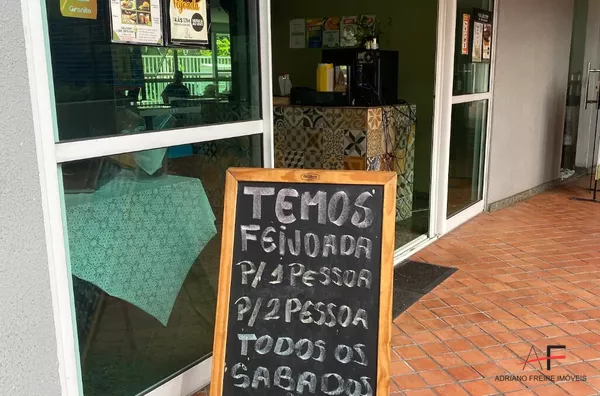 TEMOS
FEIJOADA
P/1 PESSOA
P/2 PESSOA
TODOS OS
SABADOS
AF
ADRIANO FREIRE IMÓVEIS